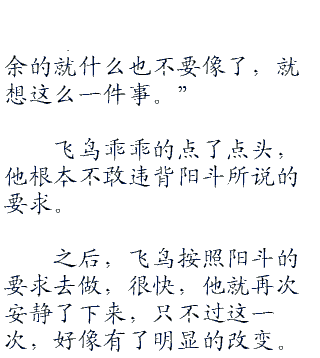 余的就什么也不要像了，就
想这么一件事。”
飞鸟乖乖的点了点头，
他根本不敢违背阳斗所说的
要求。
之后，飞鸟按照阳斗的
要求去做，很快，他就再次
安静了下来，只不过这一
次，好像有了明显的改变。